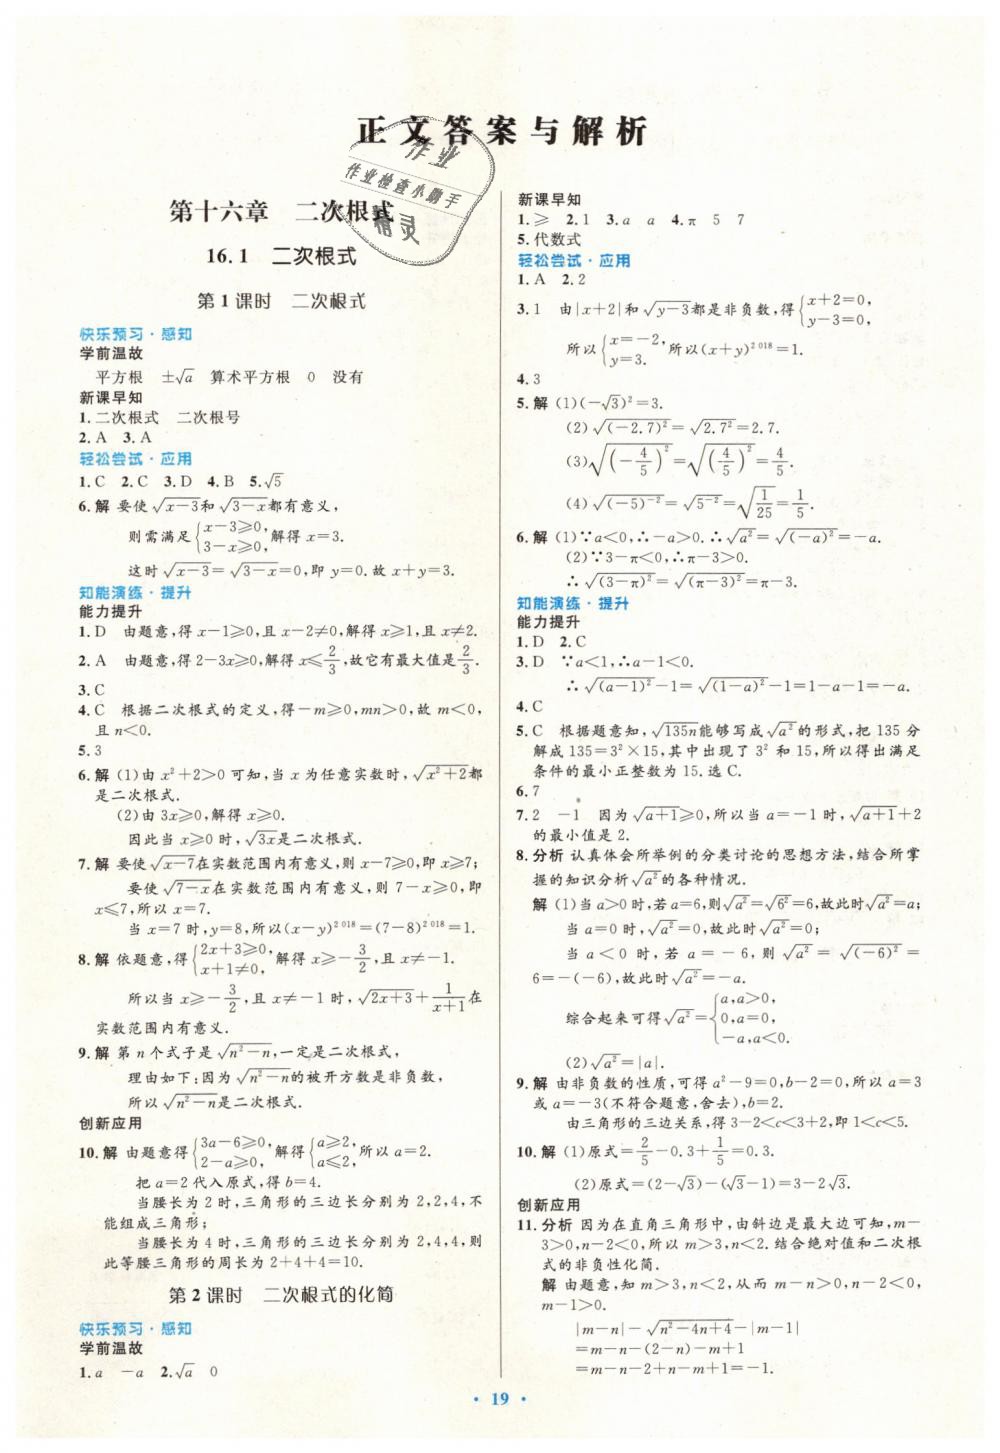 正文答案与解析
作业
作业检查小助手
精灵
第十六章　二次根式
16.1　二次根式
第1课时　二次根式
快乐预习·感知
学前温故
平方根　±√a　算术平方根　0　没有
新课早知
1.二次根式　二次根号
2.A　3.A
轻松尝试·应用
1.C　2.C　3.D　4.B　5.√5
6.解 要使√(x-3)和√(3-x)都有意义,
则需满足{x-3≥0, 3-x≥0,解得x=3.
这时√(x-3)=√(3-x)=0,即y=0.故x+y=3.
知能演练·提升
能力提升
1.D　由题意,得x-1≥0,且x-2≠0,解得x≥1,且x≠2.
2.A　由题意,得2-3x≥0,解得x≤2/3,故它有最大值是2/3.
3.C
4.C　根据二次根式的定义,得-m≥0,mn>0,故m<0,
且n<0.
5.3
6.解 (1)由x²+2>0可知,当x为任意实数时,√(x²+2)都
是二次根式.
(2)由3x≥0,解得x≥0.
因此当x≥0时,√(3x)是二次根式.
7.解 要使√(x-7)在实数范围内有意义,则x-7≥0,即x≥7;
要使√(7-x)在实数范围内有意义,则7-x≥0,即
x≤7,所以x=7.
当x=7时,y=8,所以(x-y)^2 018=(7-8)^2 018=1.
8.解 依题意,得{2x+3≥0, x+1≠0,解得x≥-3/2,且x≠-1.
所以当x≥-3/2,且x≠-1时,√(2x+3)+1/(x+1)在
实数范围内有意义.
9.解 第n个式子是√(n²-n),一定是二次根式,
理由如下:因为√(n²-n)的被开方数是非负数,
所以√(n²-n)是二次根式.
创新应用
10.解 由题意得{3a-6≥0, 2-a≥0,解得{a≥2, a≤2,所以a=2.
把a=2代入原式,得b=4.
当腰长为2时,三角形的三边长分别为2,2,4,不
能组成三角形;
当腰长为4时,三角形的三边长分别为4,4,2,则
此等腰三角形的周长为2+4+4=10.
第2课时　二次根式的化简
快乐预习·感知
学前温故
1.a　-a　2.√a　0
新课早知
1.≥　2.1　3.a　a　4.π　5　7
5.代数式
轻松尝试·应用
1.A　2.2
3.1　由|x+2|和√(y-3)都是非负数,得{x+2=0, y-3=0,
所以{x=-2, y=3.所以(x+y)^2 018=1.
4.3
5.解 (1)(-√3)²=3.
(2)√((-2.7)²)=√(2.7²)=2.7.
(3)√((-4/5)²)=√((4/5)²)=4/5.
(4)√((-5)⁻²)=√(5⁻²)=√(1/25)=1/5.
6.解 (1)∵a<0,∴-a>0.∴√(a²)=√((-a)²)=-a.
(2)∵3-π<0,∴π-3>0.
∴√((3-π)²)=√((π-3)²)=π-3.
知能演练·提升
能力提升
1.D　2.C
3.D　∵a<1,∴a-1<0.
∴√((a-1)²)-1=√((1-a)²)-1=1-a-1=-a.
4.C
5.C　根据题意知,√(135n)能够写成√(a²)的形式,把135分
解成135=3²×15,其中出现了3²和15,所以得出满足
条件的最小正整数为15.选C.
6.7
7.2　-1　因为√(a+1)≥0,所以当a=-1时,√(a+1)+2
的最小值是2.
8.分析 认真体会所举例的分类讨论的思想方法,结合所掌
握的知识分析√(a²)的各种情况.
解 (1)当a>0时,若a=6,则√(a²)=√(6²)=6,故此时√(a²)=a;
当a=0时,√(a²)=0,故此时√(a²)=0;
当a<0时,若a=-6,则√(a²)=√((-6)²)=
6=-(-6),故此时√(a²)=-a.
综合起来可得√(a²)={a,a>0, 0,a=0, -a,a<0.
(2)√(a²)=|a|.
9.解 由非负数的性质,可得a²-9=0,b-2=0,所以a=3
或a=-3(不符合题意,舍去),b=2.
由三角形的三边关系,得3-2<c<3+2,即1<c<5.
10.解 (1)原式=2/5-0.3+1/5=0.3.
(2)原式=(2-√3)-(√3-1)=3-2√3.
创新应用
11.分析 因为在直角三角形中,由斜边是最大边可知,m-
3>0,n-2<0,所以m>3,n<2.结合绝对值和二次根
式的非负性化简.
解 由题意,知m>3,n<2,从而m-n>0,n-2<0,
m-1>0.
|m-n|-√(n²-4n+4)-|m-1|
=m-n-(2-n)-m+1
=m-n-2+n-m+1=-1.
·19·